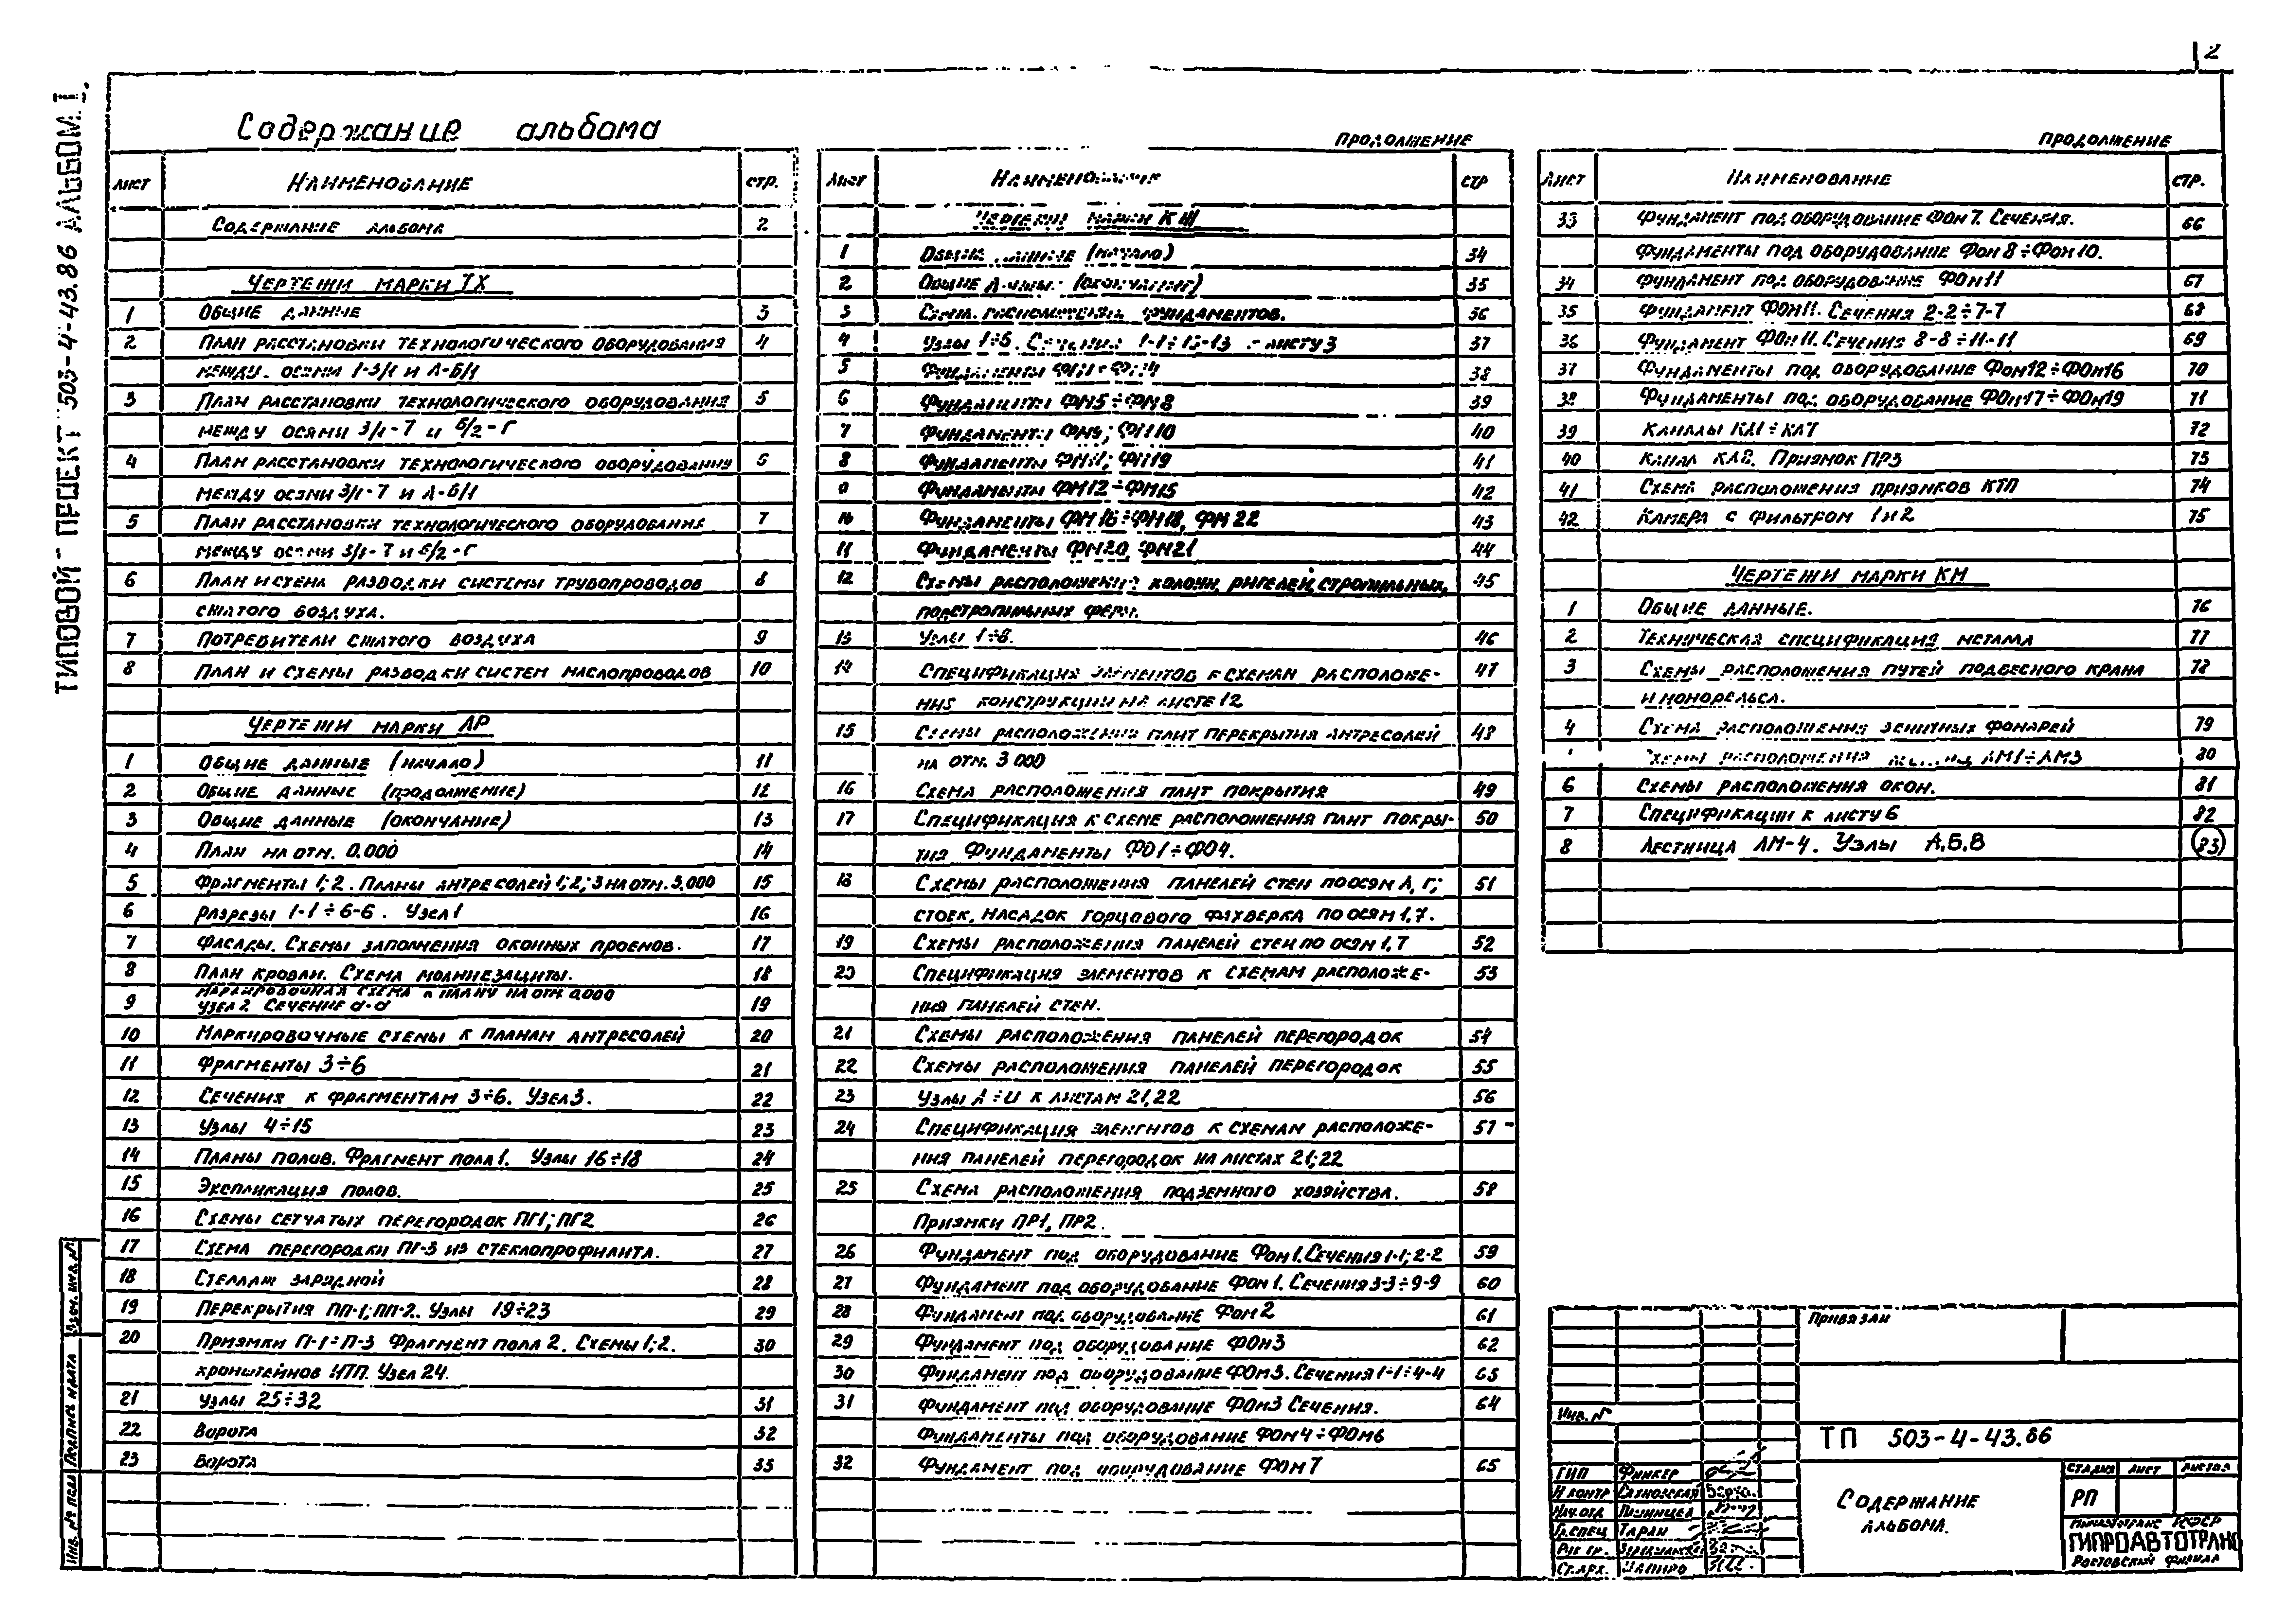 2
ТИПОВОЙ ПРОЕКТ 503-4-43.86 АЛЬБОМ I.
Содержание альбома
ЛИСТ НАИМЕНОВАНИЕ СТР.
СОДЕРЖАНИЕ АЛЬБОМА 2
ЧЕРТЕЖИ МАРКИ ТХ
1 ОБЩИЕ ДАННЫЕ 3
2 ПЛАН РАССТАНОВКИ ТЕХНОЛОГИЧЕСКОГО ОБОРУДОВАНИЯ 4
МЕЖДУ ОСЯМИ 1-3/1 И А-Б/1
3 ПЛАН РАССТАНОВКИ ТЕХНОЛОГИЧЕСКОГО ОБОРУДОВАНИЯ 5
МЕЖДУ ОСЯМИ 3/1-7 И Б/2-Г
4 ПЛАН РАССТАНОВКИ ТЕХНОЛОГИЧЕСКОГО ОБОРУДОВАНИЯ 6
МЕЖДУ ОСЯМИ 3/1-7 И А-Б/1
5 ПЛАН РАССТАНОВКИ ТЕХНОЛОГИЧЕСКОГО ОБОРУДОВАНИЯ 7
МЕЖДУ ОСЯМИ 3/1-7 И Б/2-Г
6 ПЛАН И СХЕМА РАЗВОДКИ СИСТЕМЫ ТРУБОПРОВОДОВ 8
СЖАТОГО ВОЗДУХА.
7 ПОТРЕБИТЕЛИ СЖАТОГО ВОЗДУХА 9
8 ПЛАН И СХЕМЫ РАЗВОДКИ СИСТЕМ МАСЛОПРОВОДОВ 10
ЧЕРТЕЖИ МАРКИ АР
1 ОБЩИЕ ДАННЫЕ (НАЧАЛО) 11
2 ОБЩИЕ ДАННЫЕ (ПРОДОЛЖЕНИЕ) 12
3 ОБЩИЕ ДАННЫЕ (ОКОНЧАНИЕ) 13
4 ПЛАН НА ОТМ. 0.000 14
5 ФРАГМЕНТЫ 1; 2. ПЛАНЫ АНТРЕСОЛЕЙ 1; 2; 3 НА ОТМ. 3.000 15
6 РАЗРЕЗЫ 1-1÷6-6. УЗЕЛ 1 16
7 ФАСАДЫ. СХЕМЫ ЗАПОЛНЕНИЯ ОКОННЫХ ПРОЕМОВ. 17
8 ПЛАН КРОВЛИ. СХЕМА МОЛНИЕЗАЩИТЫ. 18
МАРКИРОВОЧНАЯ СХЕМА К ПЛАНУ НА ОТМ. 0.000
9 УЗЕЛ 2. СЕЧЕНИЕ а-а 19
10 МАРКИРОВОЧНЫЕ СХЕМЫ К ПЛАНАМ АНТРЕСОЛЕЙ 20
11 ФРАГМЕНТЫ 3÷6 21
12 СЕЧЕНИЯ К ФРАГМЕНТАМ 3÷6. УЗЕЛ 3. 22
13 УЗЛЫ 4÷15 23
14 ПЛАНЫ ПОЛОВ. ФРАГМЕНТ ПОЛА 1. УЗЛЫ 16÷18 24
15 ЭКСПЛИКАЦИЯ ПОЛОВ. 25
16 СХЕМЫ СЕТЧАТЫХ ПЕРЕГОРОДОК ПГ1; ПГ2 26
17 СХЕМА ПЕРЕГОРОДКИ ПГ-3 ИЗ СТЕКЛОПРОФИЛИТА. 27
18 СТЕЛЛАЖ ЗАРЯДНОЙ 28
19 ПЕРЕКРЫТИЯ ПП-1; ПП-2. УЗЛЫ 19÷23 29
20 ПРИЯМКИ П-1÷П-3 ФРАГМЕНТ ПОЛА 2. СХЕМЫ 1; 2. 30
КРОНШТЕЙНОВ ИТП. УЗЕЛ 24.
21 УЗЛЫ 25÷32 31
22 ВОРОТА 32
23 ВОРОТА 33
ПРОДОЛЖЕНИЕ
ЛИСТ НАИМЕНОВАНИЕ СТР
ЧЕРТЕЖИ МАРКИ КЖ
1 ОБЩИЕ ДАННЫЕ (НАЧАЛО) 34
2 ОБЩИЕ ДАННЫЕ (ОКОНЧАНИЕ) 35
3 СХЕМА РАСПОЛОЖЕНИЯ ФУНДАМЕНТОВ. 36
4 УЗЛЫ 1÷5. СЕЧЕНИЯ 1-1÷13-13 ЛИСТУ 3 37
5 ФУНДАМЕНТЫ ФМ1÷ФМ4 38
6 ФУНДАМЕНТЫ ФМ5÷ФМ8 39
7 ФУНДАМЕНТЫ ФМ9; ФМ10 40
8 ФУНДАМЕНТЫ ФМ11; ФМ19 41
9 ФУНДАМЕНТЫ ФМ12÷ФМ15 42
10 ФУНДАМЕНТЫ ФМ16÷ФМ18, ФМ22 43
11 ФУНДАМЕНТЫ ФМ20, ФМ21 44
12 СХЕМЫ РАСПОЛОЖЕНИЯ КОЛОНН, РИГЕЛЕЙ, СТРОПИЛЬНЫХ, 45
ПОДСТРОПИЛЬНЫХ ФЕРМ.
13 УЗЛЫ 1÷8. 46
14 СПЕЦИФИКАЦИЯ ЭЛЕМЕНТОВ К СХЕМАМ РАСПОЛОЖЕ- 47
НИЯ КОНСТРУКЦИЙ НА ЛИСТЕ 12
15 СХЕМЫ РАСПОЛОЖЕНИЯ ПЛИТ ПЕРЕКРЫТИЯ АНТРЕСОЛЕЙ 48
НА ОТМ. 3 000
16 СХЕМА РАСПОЛОЖЕНИЯ ПЛИТ ПОКРЫТИЯ 49
17 СПЕЦИФИКАЦИЯ К СХЕМЕ РАСПОЛОЖЕНИЯ ПЛИТ ПОКРЫ- 50
ТИЯ ФУНДАМЕНТЫ ФО1÷ФО4.
18 СХЕМЫ РАСПОЛОЖЕНИЯ ПАНЕЛЕЙ СТЕН ПО ОСЯМ А, Г; 51
СТОЕК, НАСАДОК ТОРЦОВОГО ФАХВЕРКА ПО ОСЯМ 1, 7.
19 СХЕМЫ РАСПОЛОЖЕНИЯ ПАНЕЛЕЙ СТЕН ПО ОСЯМ 1, 7 52
20 СПЕЦИФИКАЦИЯ ЭЛЕМЕНТОВ К СХЕМАМ РАСПОЛОЖЕ- 53
НИЯ ПАНЕЛЕЙ СТЕН.
21 СХЕМЫ РАСПОЛОЖЕНИЯ ПАНЕЛЕЙ ПЕРЕГОРОДОК 54
22 СХЕМЫ РАСПОЛОЖЕНИЯ ПАНЕЛЕЙ ПЕРЕГОРОДОК 55
23 УЗЛЫ А÷И К ЛИСТАМ 21, 22 56
24 СПЕЦИФИКАЦИЯ ЭЛЕМЕНТОВ К СХЕМАМ РАСПОЛОЖЕ- 57
НИЯ ПАНЕЛЕЙ ПЕРЕГОРОДОК НА ЛИСТАХ 21; 22
25 СХЕМА РАСПОЛОЖЕНИЯ ПОДЗЕМНОГО ХОЗЯЙСТВА. 58
ПРИЯМКИ ПР1, ПР2.
26 ФУНДАМЕНТ ПОД ОБОРУДОВАНИЕ ФОМ1. СЕЧЕНИЯ 1-1; 2-2 59
27 ФУНДАМЕНТ ПОД ОБОРУДОВАНИЕ ФОМ1. СЕЧЕНИЯ 3-3÷9-9 60
28 ФУНДАМЕНТ ПОД ОБОРУДОВАНИЕ ФОМ2 61
29 ФУНДАМЕНТ ПОД ОБОРУДОВАНИЕ ФОМ3 62
30 ФУНДАМЕНТ ПОД ОБОРУДОВАНИЕ ФОМ3. СЕЧЕНИЯ 1-1÷4-4 63
31 ФУНДАМЕНТ ПОД ОБОРУДОВАНИЕ ФОМ3 СЕЧЕНИЯ. 64
ФУНДАМЕНТЫ ПОД ОБОРУДОВАНИЕ ФОМ4÷ФОМ6
32 ФУНДАМЕНТ ПОД ОБОРУДОВАНИЕ ФОМ7 65
ПРОДОЛЖЕНИЕ
ЛИСТ НАИМЕНОВАНИЕ СТР.
33 ФУНДАМЕНТ ПОД ОБОРУДОВАНИЕ ФОМ7. СЕЧЕНИЯ. 66
ФУНДАМЕНТЫ ПОД ОБОРУДОВАНИЕ ФОМ8÷ФОМ10.
34 ФУНДАМЕНТ ПОД ОБОРУДОВАНИЕ ФОМ11 67
35 ФУНДАМЕНТ ФОМ11. СЕЧЕНИЯ 2-2÷7-7 68
36 ФУНДАМЕНТ ФОМ11. СЕЧЕНИЯ 8-8÷11-11 69
37 ФУНДАМЕНТЫ ПОД ОБОРУДОВАНИЕ ФОМ12÷ФОМ16 70
38 ФУНДАМЕНТЫ ПОД ОБОРУДОВАНИЕ ФОМ17÷ФОМ19 71
39 КАНАЛЫ КЛ1÷КЛ7 72
40 КАНАЛ КЛ8. ПРИЯМОК ПР3 73
41 СХЕМА РАСПОЛОЖЕНИЯ ПРИЯМКОВ КТП 74
42 КАМЕРА С ФИЛЬТРОМ 1 И 2 75
ЧЕРТЕЖИ МАРКИ КМ
1 ОБЩИЕ ДАННЫЕ. 76
2 ТЕХНИЧЕСКАЯ СПЕЦИФИКАЦИЯ МЕТАЛА 77
3 СХЕМЫ РАСПОЛОЖЕНИЯ ПУТЕЙ ПОДВЕСНОГО КРАНА 78
И МОНОРЕЛЬСА.
4 СХЕМА РАСПОЛОЖЕНИЯ ЗЕНИТНЫХ ФОНАРЕЙ 79
СХЕМЫ РАСПОЛОЖЕНИЯ ЛМ1÷ЛМ3 80
6 СХЕМЫ РАСПОЛОЖЕНИЯ ОКОН. 81
7 СПЕЦИФИКАЦИИ К ЛИСТУ 6 82
8 ЛЕСТНИЦА ЛМ-4. УЗЛЫ А, Б, В 83
ПРИВЯЗАН
ИНВ. №
ТП 503-4-43.86
ГИП ФИНКЕР
Н КОНТР САХНОВСКАЯ
НАЧ. ОТД
ГЛ. СПЕЦ ТАРАН
РУК ГР.
СТ. АРХ. ШАПИРО
СОДЕРЖАНИЕ
АЛЬБОМА.
СТАДИЯ ЛИСТ ЛИСТОВ
РП
МИНАВТОТРАНС РСФСР
ГИПРОАВТОТРАНС
РОСТОВСКИЙ ФИЛИАЛ
ВЗАМ. ИНВ. №
ПОДПИСЬ И ДАТА
ИНВ. № ПОДЛ